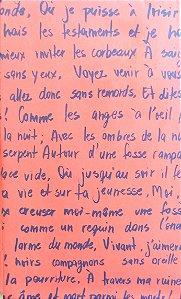 onde, Où je puisse à loisir
hais les testaments et je ha
mieux inviter les corbeaux À saig
sans yeux, Voyez venir à vous
allez donc sans remords, Et dites
! Comme les anges à l'œil f
la nuit; Avec les ombres de la nu
serpent Autour d'une fosse rampe
ace vide, Où jusqu'au soir il fe
a vie et sur ta jeunesse, Moi,
x creuser moi-même une foss
comme un requin dans l'ond
larme du monde, Vivant, j'aimera
! noirs compagnons sans oreille
la pourriture, À travers ma ruine
s âme et mort parmi les morts!